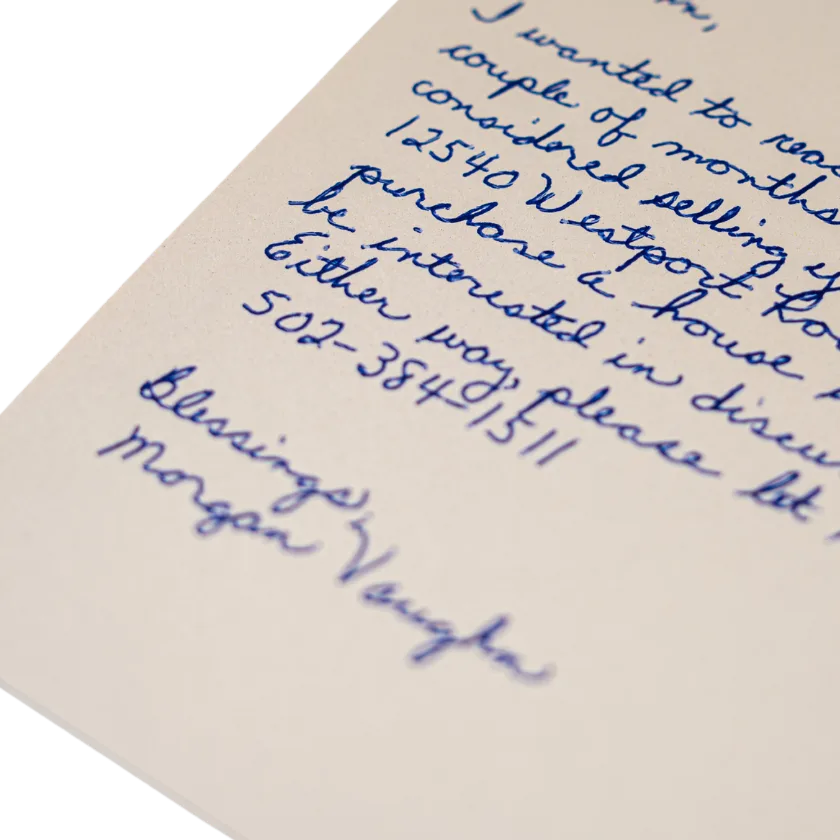 I wanted to reac
couple of months
considered selling y
12540 Westport Ro
purchase a house
be interested in discu
Either way, please let
502-384-1511
Blessings,
Morgan Vaughn